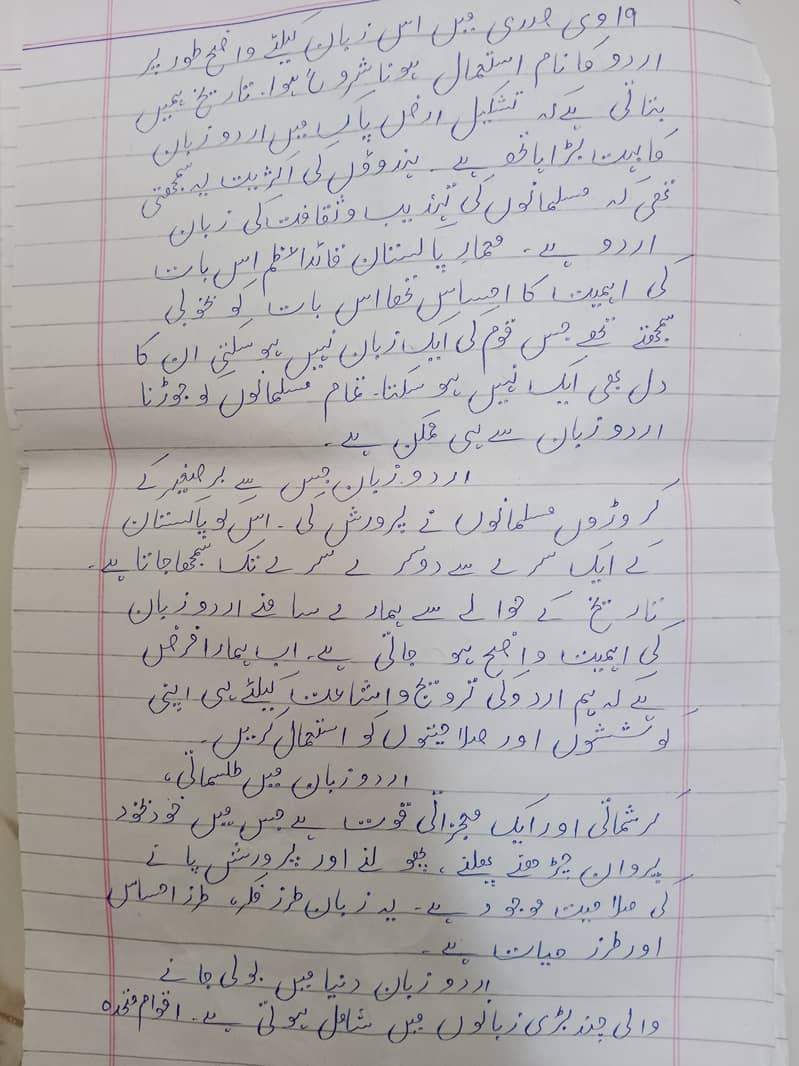 19 وی صدی میں اس زبان کیلئے واضح طور پر
اردو کا نام استعمال ہونا شروع ہوا۔ تاریخ ہمیں
بتاتی ہے کہ تشکیل ارض پاک میں اردو زبان
کا بہت بڑا ہاتھ ہے۔ ہندوؤں کی اکثریت یہ سمجھتی
تھی کہ مسلمانوں کی تہذیب و ثقافت کی زبان
اردو ہے۔ معمارِ پاکستان قائداعظم اس بات
کی اہمیت کا احساس تھا اس بات کو بخوبی
سمجھتے تھے جس قوم کی ایک زبان نہیں ہو سکتی ان کا
دل بھی ایک نہیں ہو سکتا۔ تمام مسلمانوں کو جوڑنا
اردو زبان سے ہی ممکن ہے۔
اردو زبان جس سے برصغیر کے
کروڑوں مسلمانوں نے پرورش کی۔ اس کو پاکستان
کے ایک سرے سے دوسرے سرے تک سمجھا جاتا ہے۔
تاریخ کے حوالے سے ہمارے سامنے اردو زبان
کی اہمیت واضح ہو جاتی ہے۔ اب ہمارا فرض
ہے کہ ہم اردو کی ترویج و اشاعت کیلئے ہی اپنی
کوششوں اور صلاحیتوں کو استعمال کریں۔
اردو زبان میں طلسماتی،
کرشماتی اور ایک معجزاتی قوت ہے جس میں خودبخود
پروان چڑھنے پھلنے، پھولنے اور پرورش پانے
کی صلاحیت موجود ہے۔ یہ زبان طرز فکر، طرز احساس
اور طرز حیات ہے۔
اردو زبان دنیا میں بولی جانے
والی چند بڑی زبانوں میں شامل ہوتی ہے۔ اقوام متحدہ